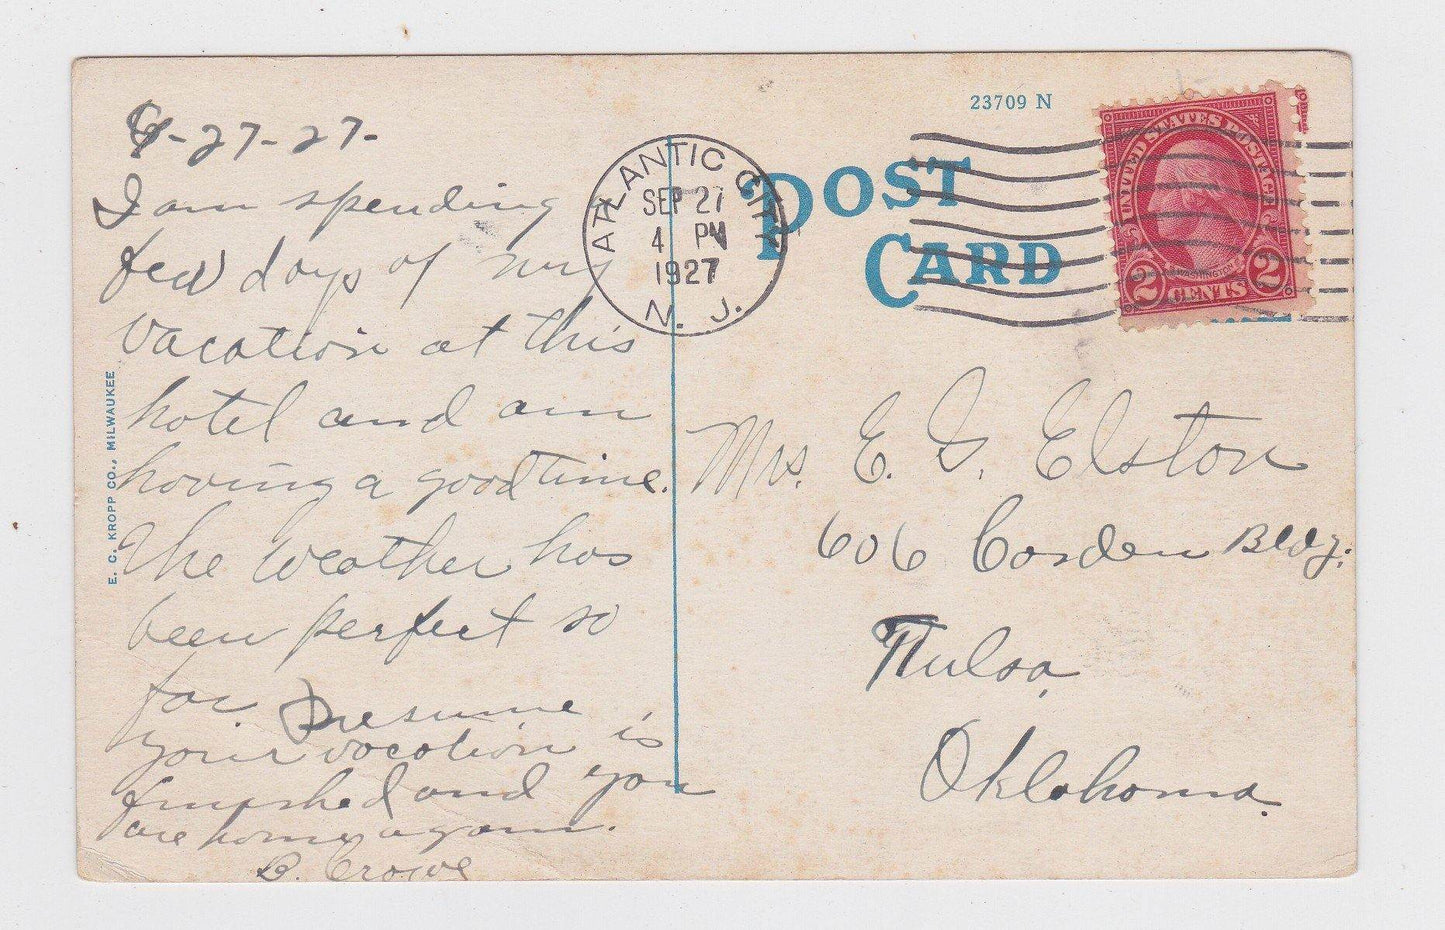 9-27-27-
I am spending a
few days of my
vacation at this
hotel and am
having a good time.
The weather has
been perfect so
far. Presume
your vacation is
finished and you
are home again.
B. Crowe
E. C. KROPP CO., MILWAUKEE
ATLANTIC CITY
SEP 27
4 PM
1927
N. J.
23709 N
POST
CARD
UNITED STATES POSTAGE
WASHINGTON
2 CENTS 2
Mrs. E. G. Elston
606 Cosden Bldg.
Tulsa,
Oklahoma.